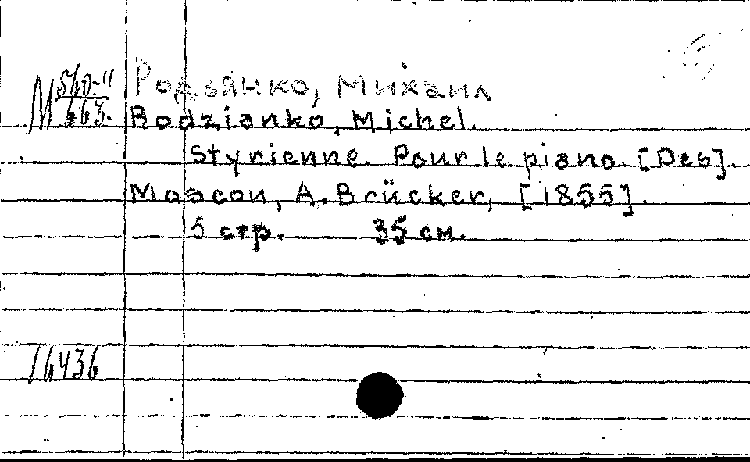 М 560-II
663.
Родзянко, Михаил
Rodzianko, Michel.
Styrienne. Pour le piano. [Des].
Moscou, A. Brücker, [1855].
5 стр. 35 см.
16436